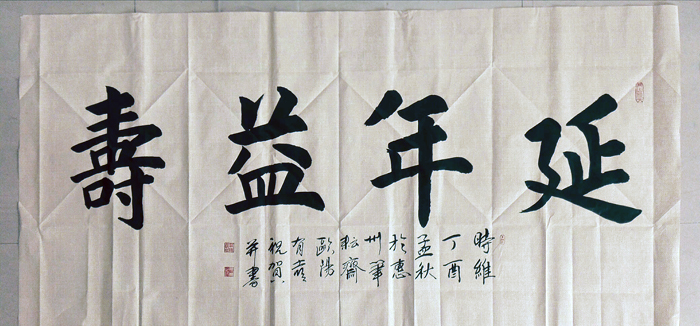 延年益壽
時維
丁酉
孟秋
於惠
州筆
耘齋
歐陽
有喜
祝賀
并書